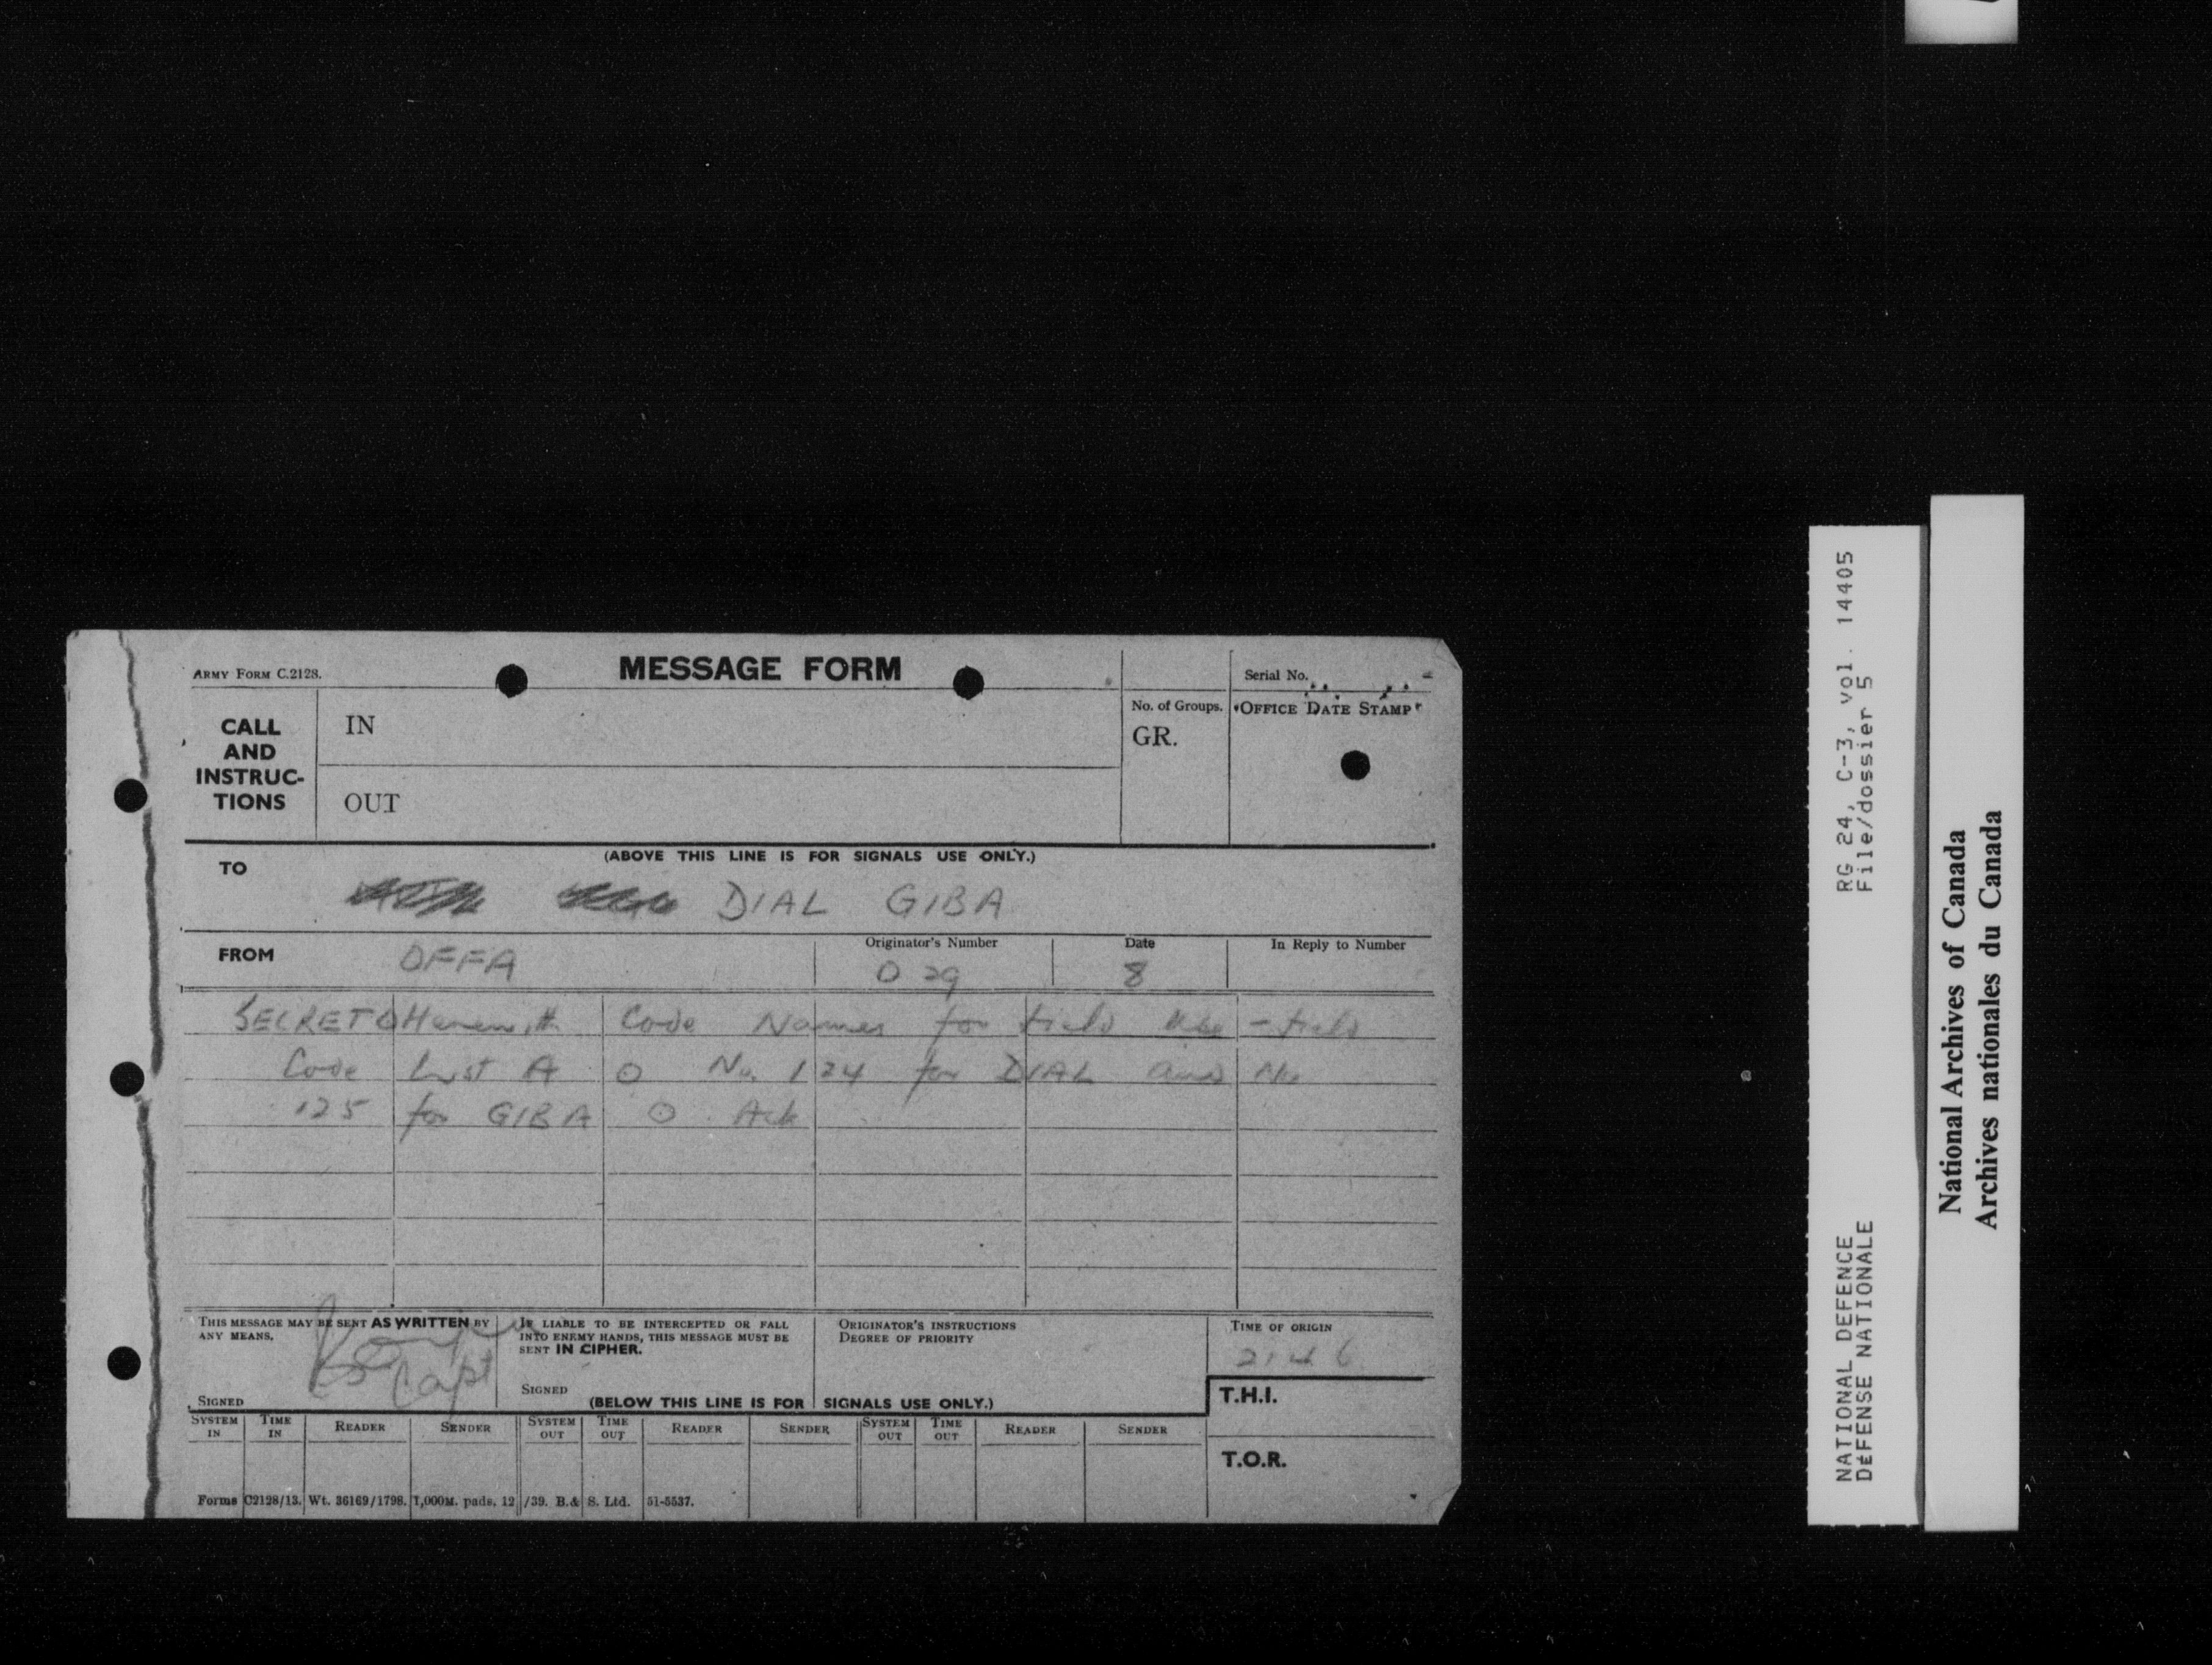 ARMY FORM C.2128.
MESSAGE FORM
Serial No.
CALL AND INSTRUC-TIONS
IN
OUT
No. of Groups.
GR.
OFFICE DATE STAMP
(ABOVE THIS LINE IS FOR SIGNALS USE ONLY.)
TO
DIAL GIBA
FROM
OFFA
Originator's Number
O 29
Date
8
In Reply to Number
SECRET O Herewith Code Names for field use - field
Code List A O No. 124 for DIAL and No
125 for GIBA O Ack
THIS MESSAGE MAY BE SENT AS WRITTEN BY
ANY MEANS.
Capt
SIGNED
IF LIABLE TO BE INTERCEPTED OR FALL
INTO ENEMY HANDS, THIS MESSAGE MUST BE
SENT IN CIPHER.
SIGNED
ORIGINATOR'S INSTRUCTIONS
DEGREE OF PRIORITY
TIME OF ORIGIN
2146
(BELOW THIS LINE IS FOR SIGNALS USE ONLY.)
T.H.I.
T.O.R.
SYSTEM IN TIME IN READER SENDER SYSTEM OUT TIME OUT READER SENDER SYSTEM OUT TIME OUT READER SENDER
Forms C2128/13. Wt. 36169/1798. 1,000M. pads. 12/39. B.& S. Ltd. 51-5537.
RG 24, C-3, vol. 14405
File/dossier 5
NATIONAL DEFENCE
DÉFENSE NATIONALE
National Archives of Canada
Archives nationales du Canada